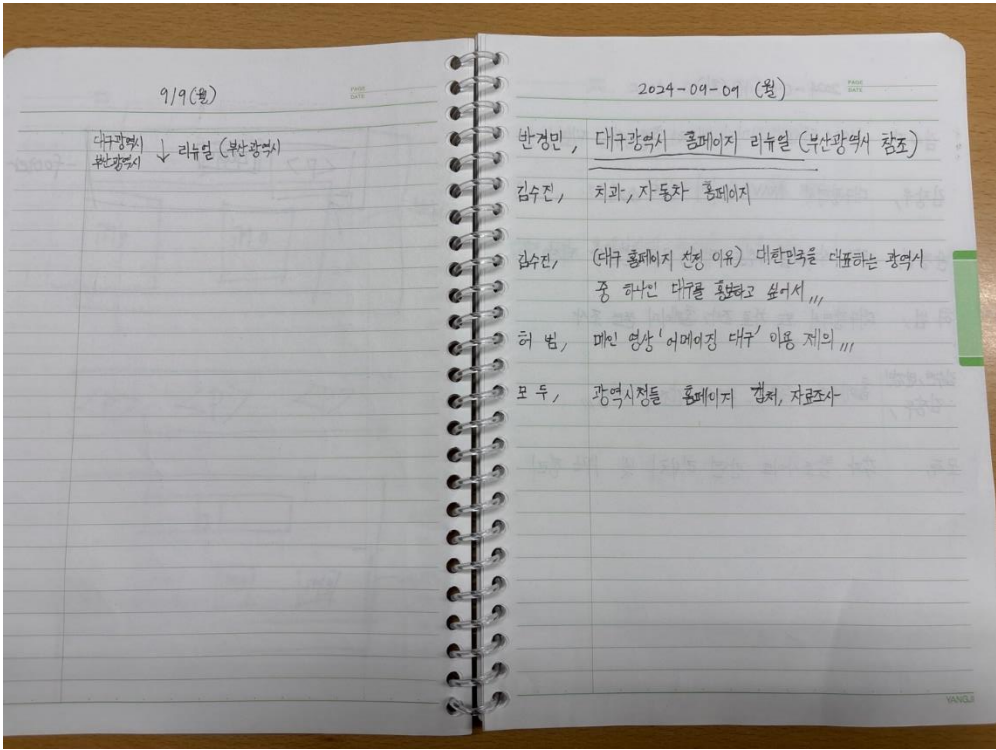 9/9(월)
PAGE
DATE
대구광역시
부산광역시 ↓ 리뉴얼 (부산광역시
2024-09-09 (월)
PAGE
DATE
반경민, 대구광역시 홈페이지 리뉴얼 (부산광역시 참조)
김수진, 치과, 자동차 홈페이지
김수진, (대구 홈페이지 선정 이유) 대한민국을 대표하는 광역시
중 하나인 대구를 홍보하고 싶어서,,,
허 범, 메인 영상 '어메이징 대구' 이용 제의,,,
모 두, 광역시청들 홈페이지 캡처, 자료조사
YANGJI